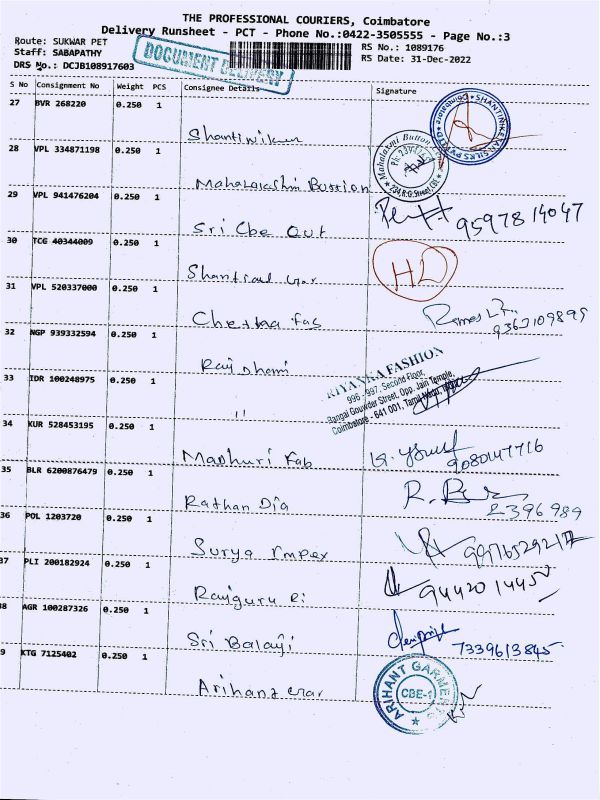 THE PROFESSIONAL COURIERS, Coimbatore
Delivery Runsheet - PCT - Phone No.:0422-3505555 - Page No.:3
Route: SUKWAR PET
Staff: SABAPATHY
DRS No.: DCJB108917603
DOCUMENT DELIVERY
RS No.: 1089176
RS Date: 31-Dec-2022
S No Consignment No Weight PCS Consignee Details Signature
27 BVR 268220 0.250 1
SHANTINIKETAN SILKS PVT LTD
28 VPL 334871198 0.250 1
Mahalaxmi Button
R.G. Street
29 VPL 941476204 0.250 1
Sri Cbe Out 9597814047
30 TCG 40344009 0.250 1
HD
31 VPL 520337000 0.250 1
Chetna fas 9363109895
32 NGP 939332594 0.250 1
Raj Dhani
33 IDR 100248975 0.250 1
"
RIYANKA FASHION
996 - 997, Second Floor,
Rangai Gowder Street, Opp. Jain Temple,
Coimbatore - 641 001, Tamil Nadu,
34 KUR 528453195 0.250 1
Madhuri Fab 9080147716
35 BLR 6200876479 0.250 1
Rathan Dia 2396989
36 POL 1203720 0.250 1
Surya Impex
37 PLI 200182924 0.250 1
Rajguru 9442014452
38 AGR 100287326 0.250 1
Sri Balaji 7339613845
9 KTG 7125402 0.250 1
Arihant Gar
ARIHANT GARMENTS
CBE-1